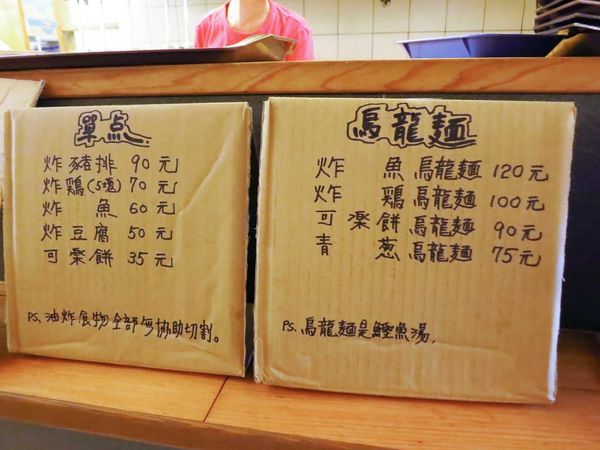 單点
炸豬排 90元
炸鶏(5塊) 70元
炸魚 60元
炸豆腐 50元
可楽餅 35元
PS. 油炸食物全部無協助切割。
烏龍麵
炸魚烏龍麵 120元
炸鶏烏龍麵 100元
可楽餅烏龍麵 90元
青葱烏龍麵 75元
PS. 烏龍麵是鰹魚湯.